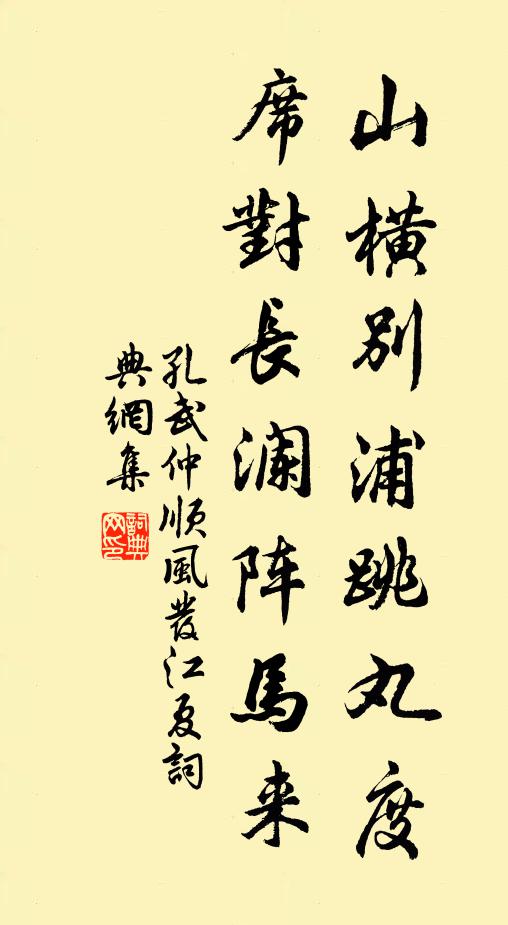 山橫别浦跳丸度
席對長澜阵馬来
孔武仲順風發江夏詞
典網集
詞典
网印